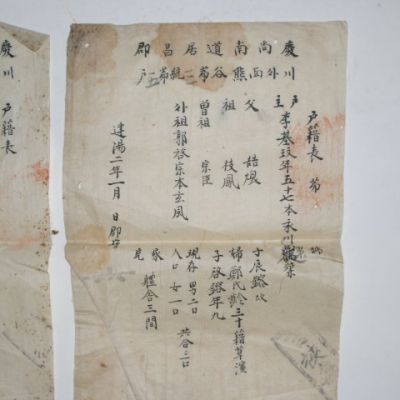 戶籍表 第 號
慶尚南道居昌郡
川外面熊谷第二統第五戶
戶主 李基玟年五十七本永川
父
祖 枝鳳
曾祖 宗臣
外祖 郭啓宗本玄風
建陽二年一月 日郡守
婦鄭氏齡三十籍草溪
年九
現存 男二口
人口 女一口 共合三口
家
舍三間
慶
川
戶籍表